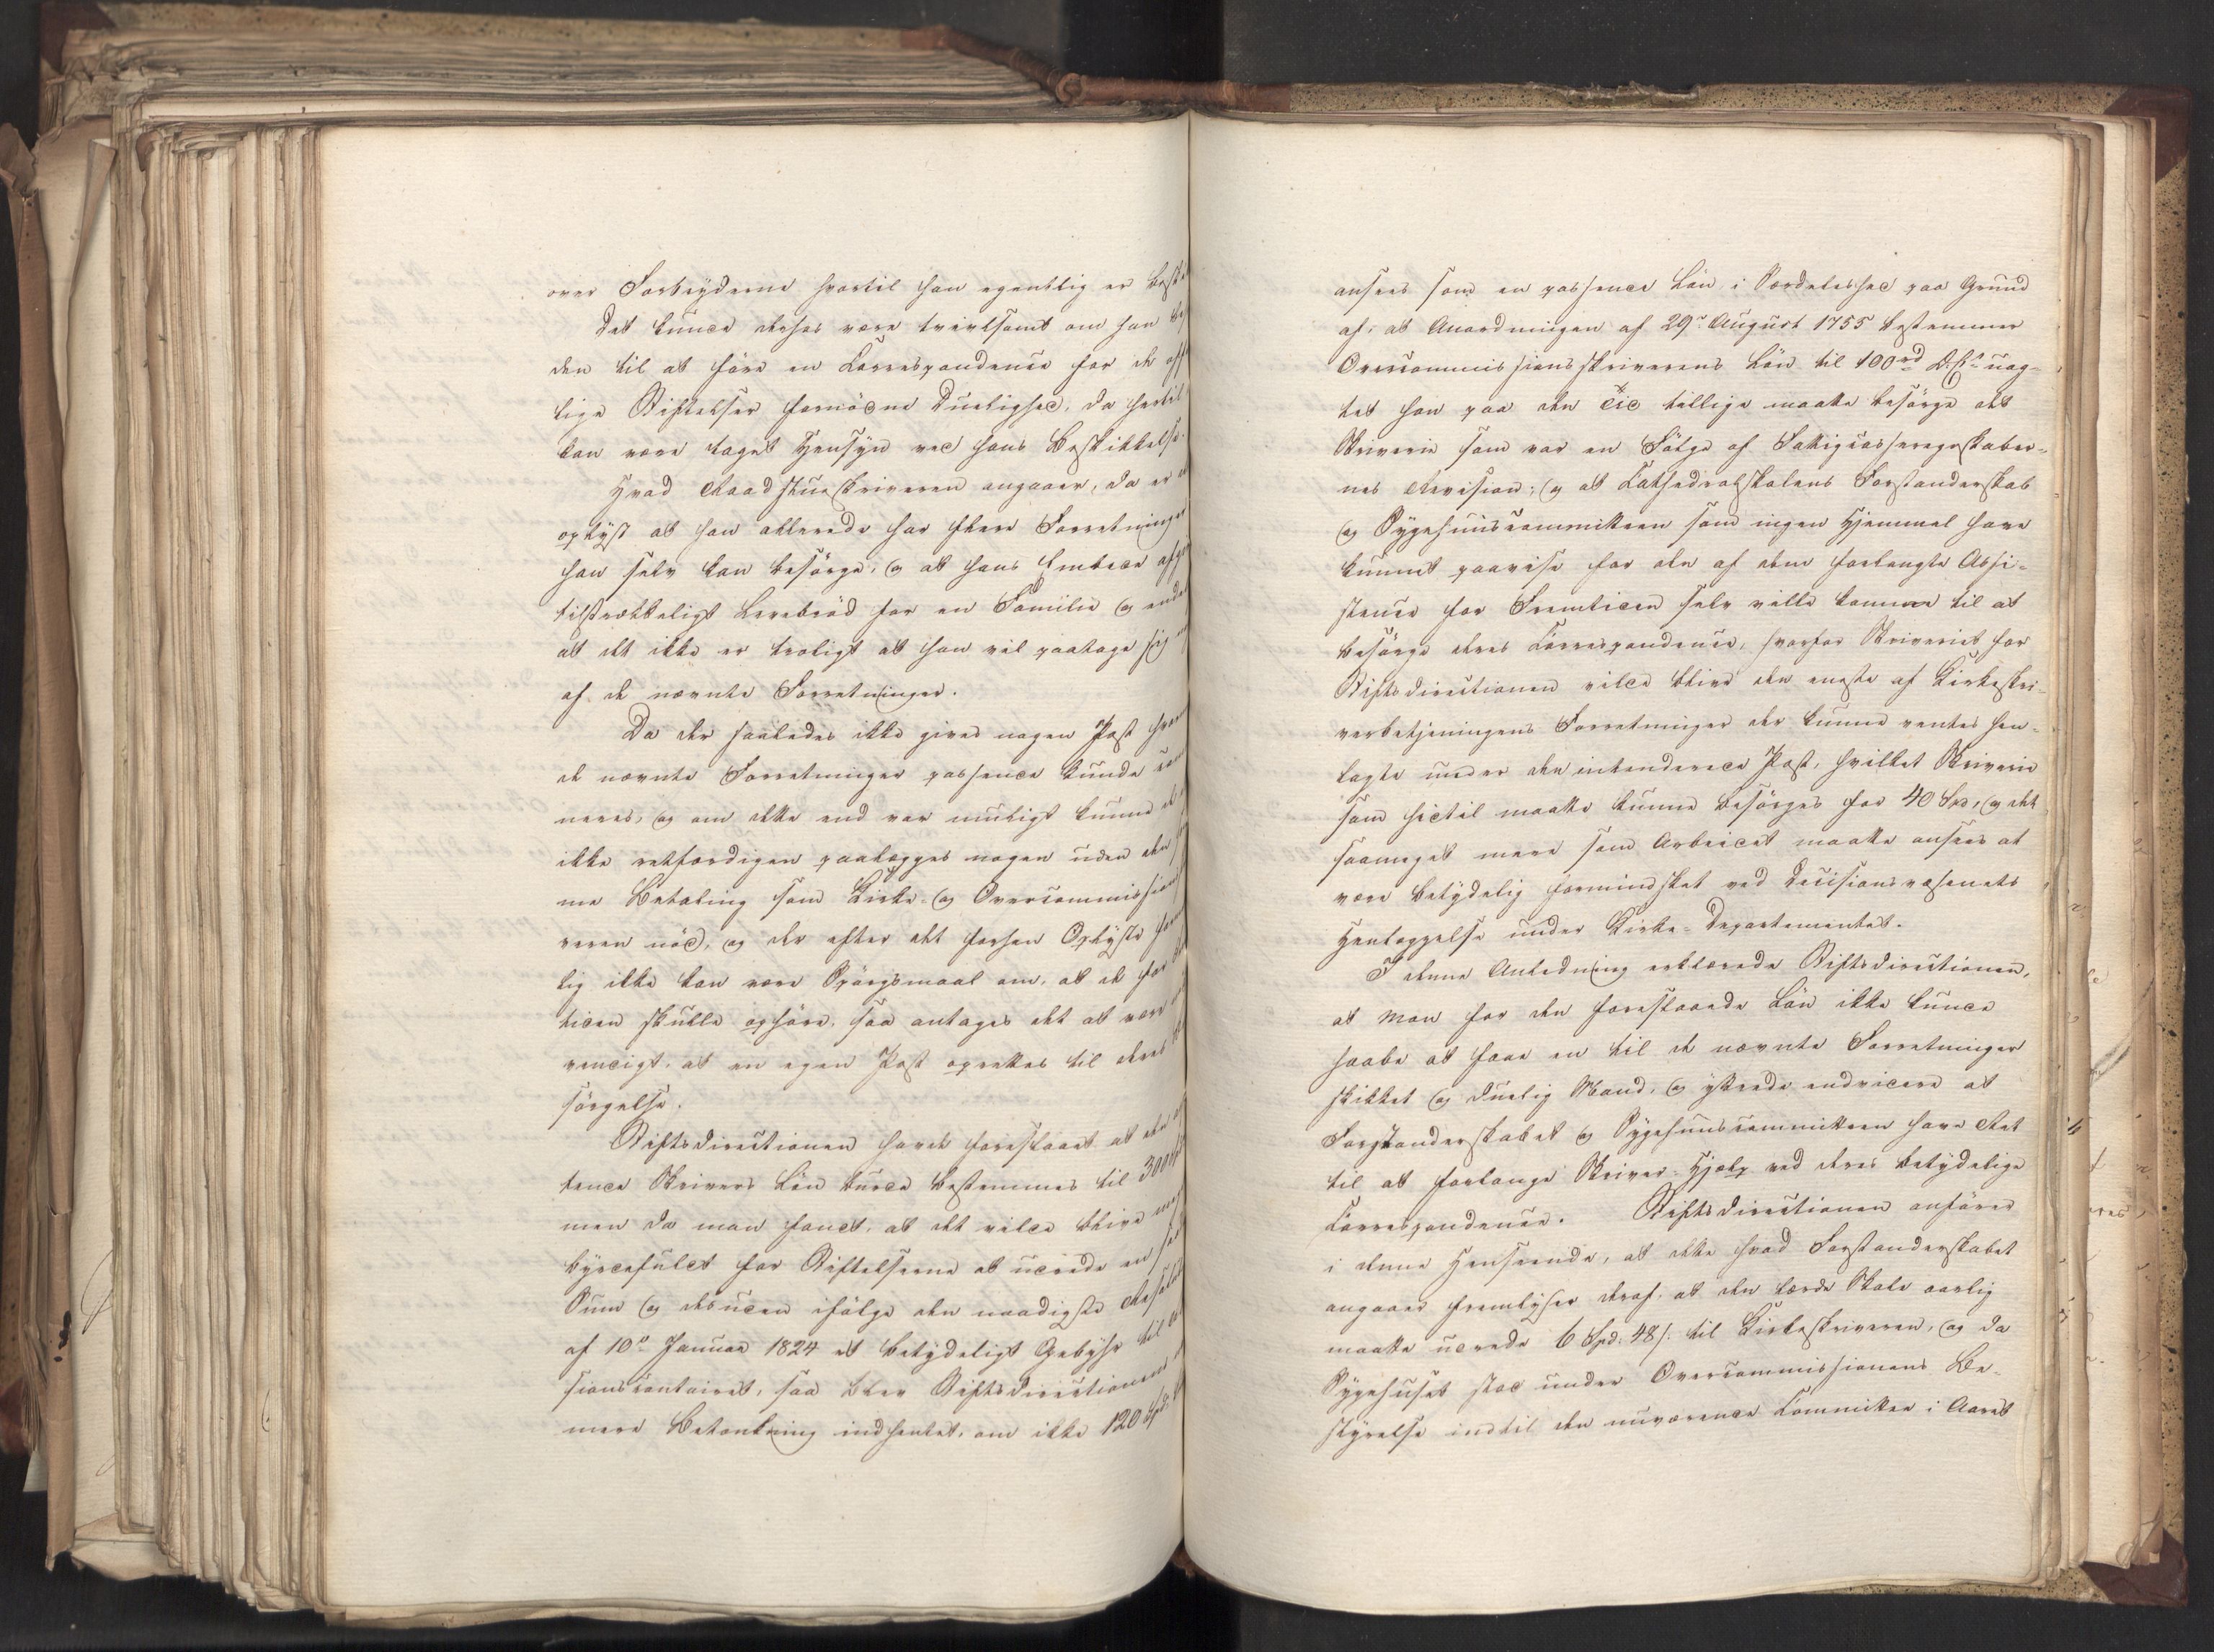 over Forbryderne hvortil han egentlig er
Det kunde ogsaa være tvivlsomt om han
den til at føre en Correspondence for de
lige Stiftelser fornødne Duelighed, da hertil
kan være taget Hensyn ved hans Beskikkelse.
Hvad Raadstueskriveren angaaer, da er
oplyst at han allerede har flere Forretninger
han selv kan besørge, og at hans Embede
tilstrækkeligt Levebrød for en Familie og
at det ikke er troligt at han vil paatage sig
af de nævnte Forretninger.
Da der saaledes ikke gives nogen Post
de nævnte Forretninger passende kunde
neres, og om dette end var muligt kunne
ikke retfærdigen paalægges nogen uden den
me Betaling som Kirke- og Overcommissions
veren nød, og der efter det forhen Oplyste
lig ikke kan være Spørgsmaal om, at de
tiden skulle ophøre, saa antages det at være
vendigt, at en egen Post oprettes til deres
sørgelse.
Stiftsdirectionen havde foreslaaet at den
tende Skrivers Løn burde bestemmes til 300
men da man fandt, at det vilde blive
byrdefuldt for Stiftelserne at udrede en
Sum og desuden ifølge den naadigste
af 10de Januar 1824 et betydeligt Gebyhr til
sionscontoiret, saa blev Stiftsdirectionens
mere Betænkning indhentet, om ikke 120 Spd.
ansees som en passende Løn i Særdeleshed paa Grund
af, at Anordningen af 29de August 1755 bestemmer
Overcommissionsskriverens Løn til 100rd D. C. uag-
tet han paa den Tid tillige maatte besørge det
Skriverie som var en Følge af Fattigcasseregnskaber-
nes Revision; og at Cathedralskolens Forstanderskab
og Sygehuuscommitteen som ingen Hjemmel have
kunnet paavise for den af dem forlangte Assi-
stence for Fremtiden selv ville komme til at
besørge deres Correspondence, hvorfor Skriveriet for
Stiftsdirectionen vilde blive den eneste af Kirkeskri-
verbetjeningens Forretninger der kunne ventes hen-
lagte under den intenderede Post, hvilket Skriverie
som hidtil maatte kunne besørges for 40 Spd, og det
saameget mere som Arbeidet maatte ansees at
være betydelig formindsket ved Decisionsvæsenets
Henlæggelse under Kirke-Departementet.
I denne Anledning erklærede Stiftsdirectionen,
at man for den foreslaaede Løn ikke kunde
haabe at faae en til de nævnte Forretninger
skikket og duelig Mand, og yttrede endvidere at
Forstanderskabet og Sygehuuscommitteen have Ret
til at forlange Skriver-Hjælp ved deres betydelige
Correspondence. Stiftsdirectionen anfører
i denne Henseende, at dette hvad Forstanderskabet
angaaer fremlyser deraf, at den lærde Skole aarlig
maatte udrede 6 Spd. 48 s. til Kirkeskriveren, og da
Sygehuset stod under Overcommissionens Be-
styrelse indtil den nuværende Committee i Aaret